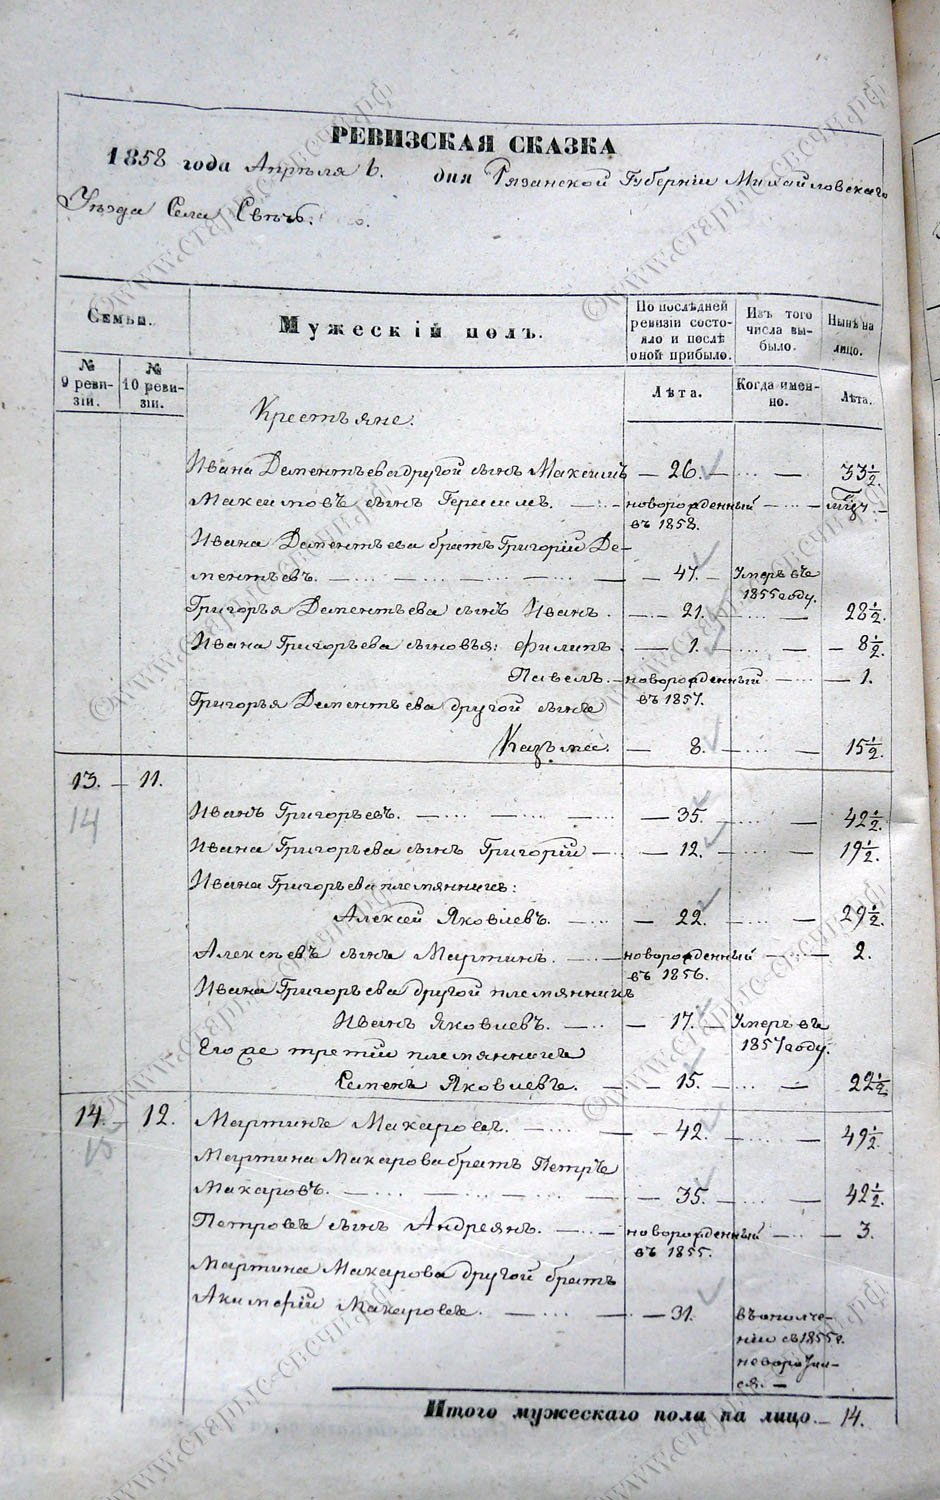 РЕВИЗСКАЯ СКАЗКА
1858 года Апреля 6. дня Рязанской Губернiи Михайловскаго
Уѣзда Села
Семьи.
Мужескiй полъ.
По послѣдней ревизiи состояло и послѣ оной прибыло.
Изъ того числа выбыло.
Нынѣ на лицо.
№ 9 ревизiи.
№ 10 ревизiи.
Лѣта.
Когда именно.
Лѣта.
Крестьяне.
Ивана Дементьева другой сынъ Максимъ — 26. — ... — 33½.
Максимовъ сынъ Герасимъ. — новорожденный въ 1858. — ... —
Ивана Дементьева братъ Григорiй Де-
ментьевъ. — ... — 47. — Умеръ въ 1855 году.
Григорья Дементьева сынъ Иванъ. — 21. — ... — 28½.
Ивана Григорьева сыновья: Филипъ — 1. — ... — 8½.
Павелъ. — новорожденный въ 1857. — ... — 1.
Григорья Дементьева другой сынъ
Казьма. — 8. — ... — 15½.
13. — 11.
14
Иванъ Григорьевъ. — ... — 35. — ... — 42½.
Ивана Григорьева сынъ Григорiй — 12. — ... — 19½.
Ивана Григорьева племянникъ:
Алексей Яковлевъ. — 22. — ... — 29½.
Алексѣевъ сынъ Мартинъ. — новорожденный въ 1856. — ... — 2.
Ивана Григорьева другой племянникъ
Иванъ Яковлевъ. — 17. — Умеръ въ 1857 году.
Его же третiй племянникъ
Семенъ Яковлевъ. — 15. — ... — 22½.
14. — 12. Мартинъ Макаровъ. — ... — 42. — ... — 49½.
15
Мартина Макарова братъ Петръ
Макаровъ. — ... — 35. — ... — 42½.
Петровъ сынъ Андреянъ. — новорожденный въ 1855. — ... — 3.
Мартина Макарова другой братъ
Акимфiй Макаровъ. — ... — 31. въ ополче-
нiи съ 1855 г.
невороти-
лся. —
Итого мужескаго пола на лицо. — 14.
©www.старые-свечи.рф